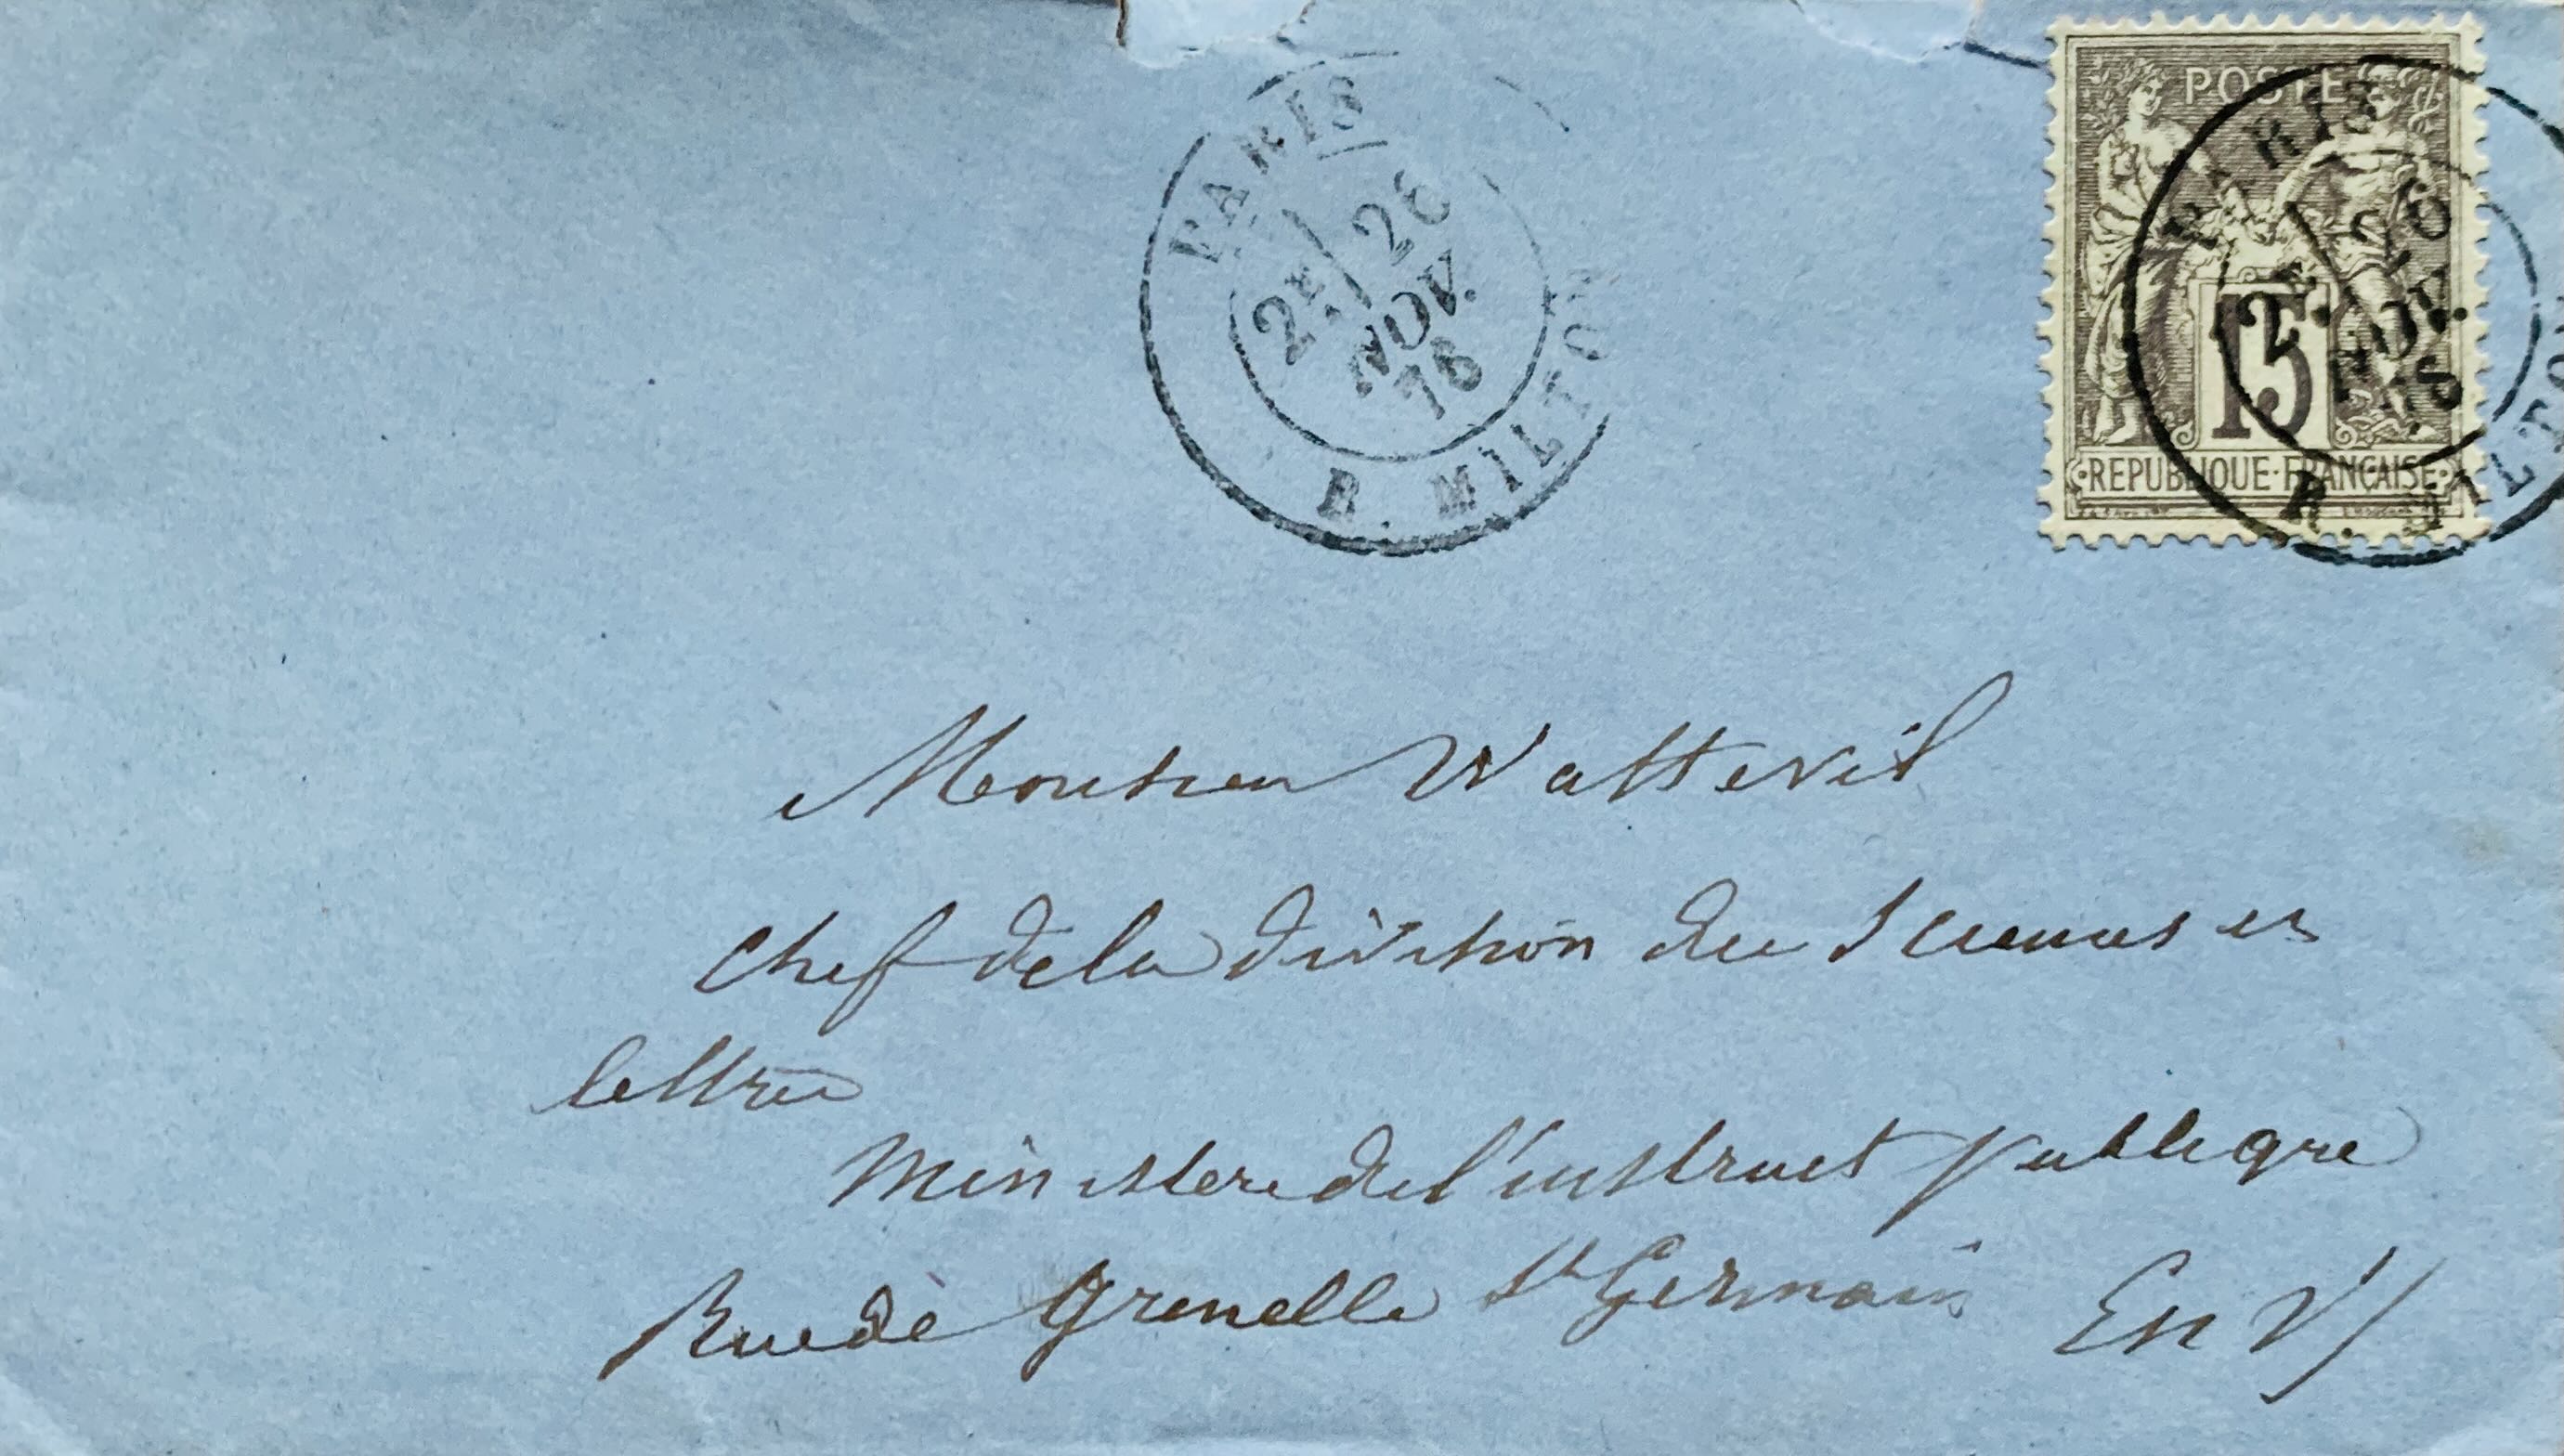 PARIS
2E 26
NOV.
76
R. MILTON
POSTE
15
REPUBLIQUE FRANÇAISE
PARIS
2E 26
NOV.
76
R. MILTON
Monsieur Wattevil
Chef de la division des Sciences et
lettres
Ministere de l'instruct publique
Rue de Grenelle St Germain En V/